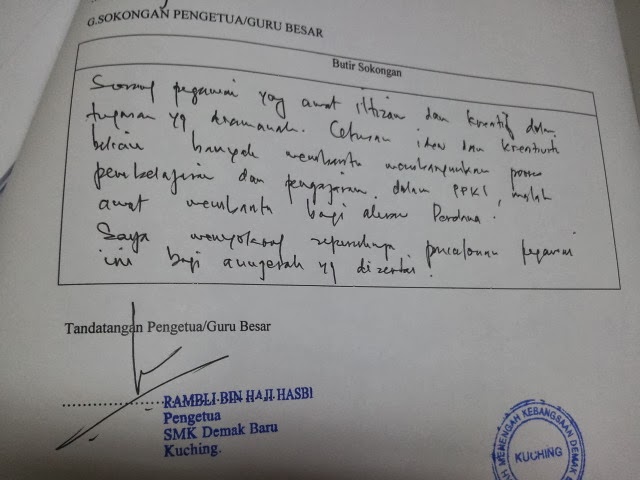 G.SOKONGAN PENGETUA/GURU BESAR
Butir Sokongan
Seorang pegawai yang amat iltizam dan kreatif dalam
tugasan yg diamanah. Cetusan idea dan kreativiti
beliau banyak membantu membangunkan proses
pembelajaran dan pengajaran dalam PPKI, malah
amat membantu bagi aliran Perdana.
Saya menyokong sepenuhnya pencalonan pegawai
ini bagi anugerah yg disertai.
Tandatangan Pengetua/Guru Besar
RAMBLI BIN HAJI HASBI
Pengetua
SMK Demak Baru
Kuching.
MENENGAH KEBANGSAAN DEMAK
KUCHING